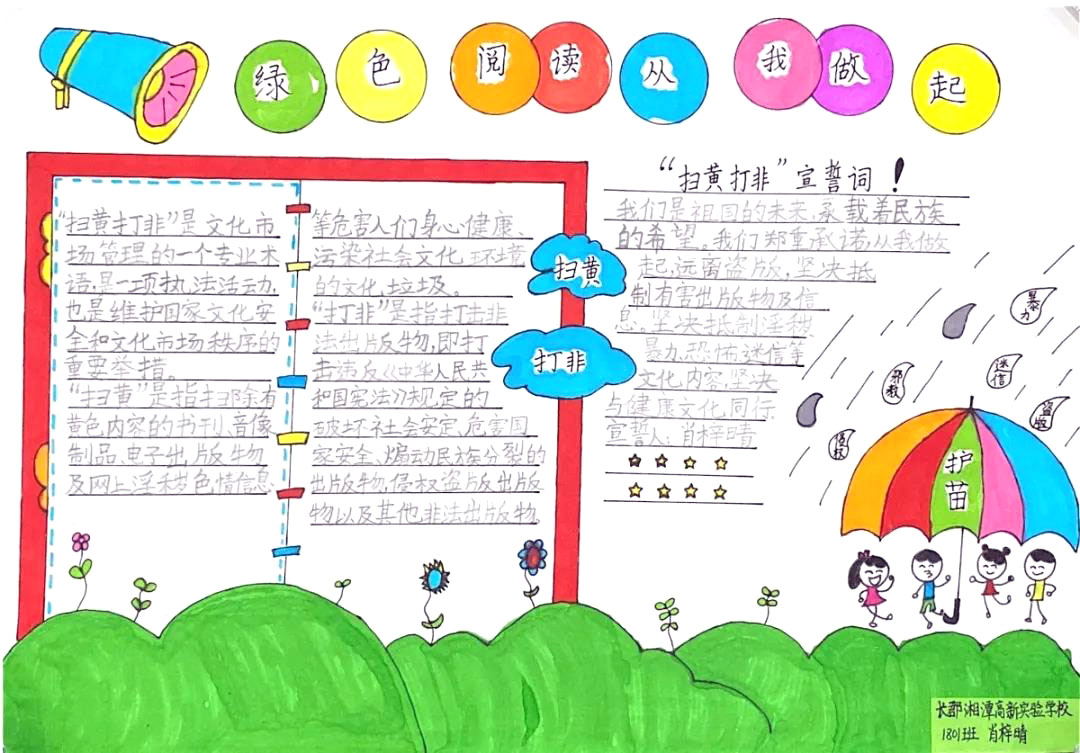 绿色阅读从我做起
“扫黄打非”是文化市
场管理的一个专业术
语,是一项执法活动,
也是维护国家文化安
全和文化市场秩序的
重要举措。
“扫黄”是指扫除有
黄色内容的书刊、音像
制品、电子出版物
及网上淫秽色情信息
等危害人们身心健康、
污染社会文化环境
的文化垃圾。
“打非”是指打击非
法出版物,即打
击违反《中华人民共
和国宪法》规定的
破坏社会安定、危害国
家安全、煽动民族分裂的
出版物,侵权盗版出版
物以及其他非法出版物.
扫黄
打非
“扫黄打非”宣誓词!
我们是祖国的未来,承载着民族
的希望。我们郑重承诺,从我做
起,远离盗版,坚决抵
制有害出版物及信
息,坚决抵制淫秽
暴力、恐怖、迷信等
文化内容,坚决
与健康文化同行.
宣誓人:肖梓晴
暴力
迷信
邪教
盗版
侵权
护苗
长郡湘潭高新实验学校
1801班 肖梓晴